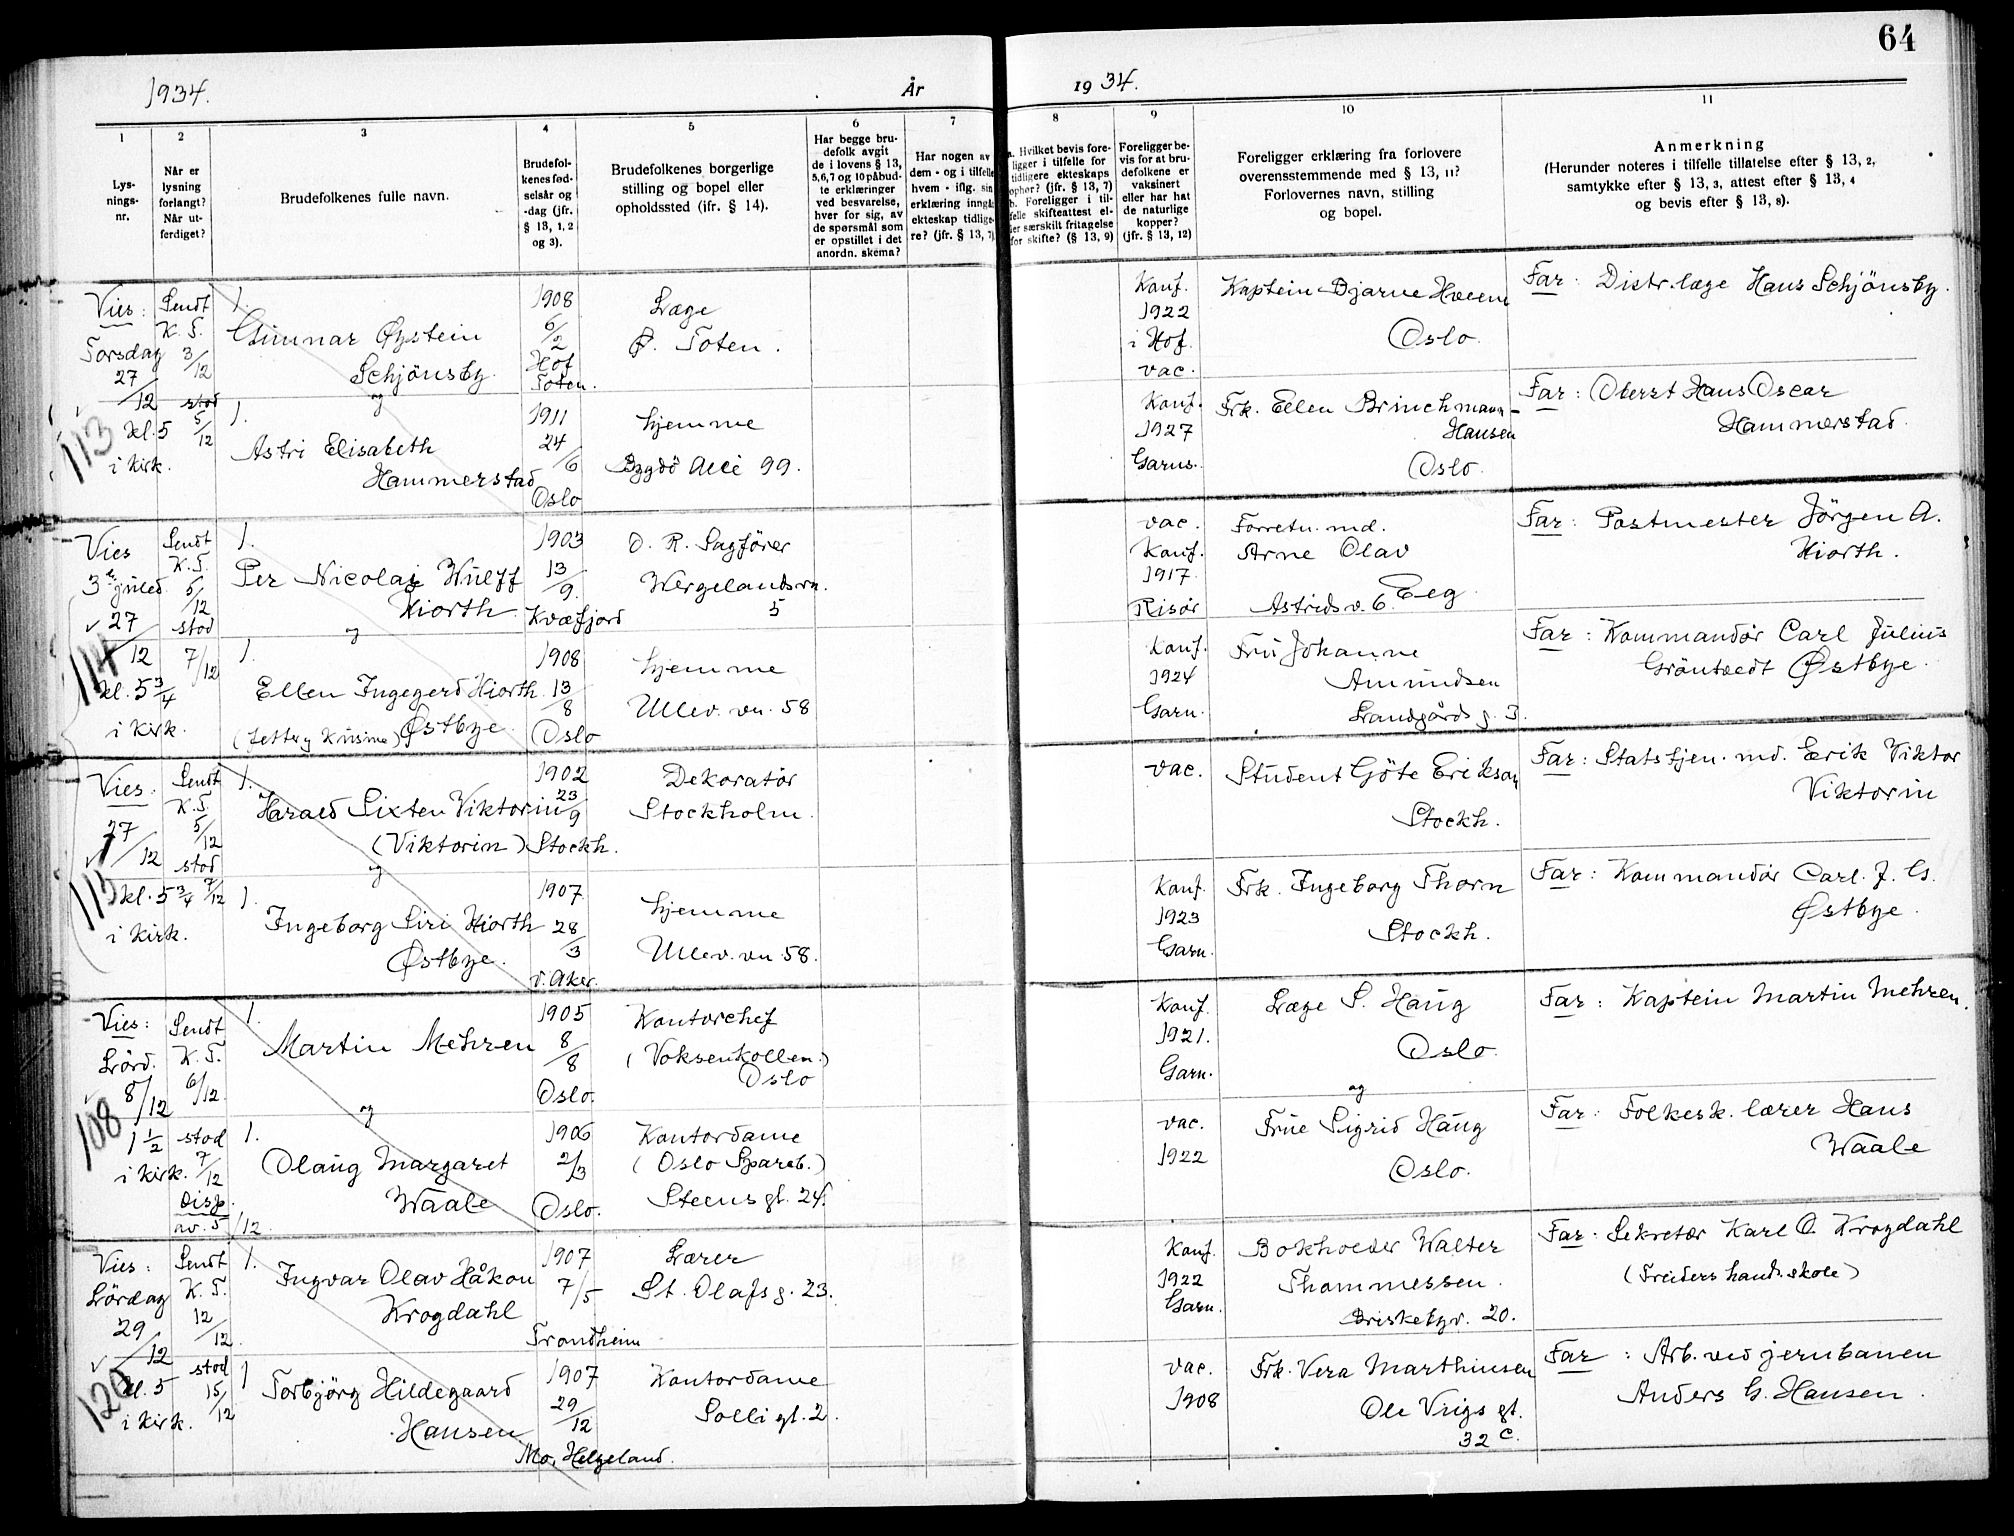 64
1934.
År
19 34.
1
2
3
4
5
6
7
8
9
10
11
Lys-
nings-
nr.
Når er
lysning
forlangt?
Når ut-
ferdiget?
Brudefolkenes fulle navn.
Brudefol-
kenes fød-
selsår og
-dag (jfr.
§ 13, 1, 2
og 3).
Brudefolkenes borgerlige
stilling og bopel eller
opholdssted (ifr. § 14).
Har begge bru-
defolk avgit
de i lovens § 13,
5,6,7 og 10 påbud-
te erklæringer
ved besvarelse,
hver for sig, av
de spørsmål som
er opstillet i det
anordn. skema?
Har nogen av
dem - og i tilfelle
hvem - iflg. sin
erklæring inngå
ekteskap tidlige-
re? (jfr. § 13, 7)
a. Hvilket bevis fore-
ligger i tilfelle for
tidligere ekteskaps
ophør? (jfr. § 13, 7)
b. Foreligger i til-
felle skifteattest el-
ler særskilt fritagelse
for skifte? (§ 13, 9)
Foreligger be-
vis for at bru-
defolkene er
vaksinert
eller har hat
de naturlige
kopper?
(jfr. § 13, 12)
Foreligger erklæring fra forlovere
overensstemmende med § 13, 11?
Forlovernes navn, stilling
og bopel.
Anmerkning
(Herunder noteres i tilfelle tillatelse efter § 13, 2,
samtykke efter § 13, 3, attest efter § 13, 4
og bevis efter § 13, 8).
113
Vies:
Torsdag
27/12
kl. 5
i Kirk.
Sendt
K. T.
3/12
stod
5/12
1.
Gunnar Øystein
Schjönsby
og
1908
6/2
Hof
Toten.
Læge
Ø. Toten.
Konf.
1922
i Hof.
vac.
Kaptein Bjarne Hveem
Oslo.
Far: Distr.læge Hans Schjönsby.
1.
Astri Elisabeth
Hammerstad
1911
24/6
Oslo
hjemme
Bygdö Allé 99.
Konf.
1927
Garns.
Frk. Ellen Brinchmann-
Hansen
Oslo
Far: Oberst Hans Oscar
Hammerstad.
114
Vies
3die juled.
27/12
kl. 5 3/4
i Kirk.
Sendt
K. T.
5/12
stod
7/12
1.
Per Nicolai Wulff
Hiorth
og
1903
13/9.
Kvæfjord
O. R. Sagförer
Wergelandsvn.
5
vac.
Konf.
1917.
Risör
Forretn. md.
Arne Olav
Eeg
Astrids v. 6.
Far: Postmester Jörgen A.
Hiorth.
1.
Ellen Ingegerd Hiorth
Østbye.
(fetter og kusine)
1908
13/8
Oslo
hjemme
Ullev. vn. 58
Konf.
1924
Garn.
Fru Johanne
Amundsen
Landgårds g. 3.
Far: Kommandör Carl Julius
Gröntvedt Østbye.
115
Vies:
27/12
kl. 5 3/4
i Kirk.
Sendt
K. T.
5/12
stod
7/12
1.
Harald Sixten Viktorin
(Viktorin)
og
1902
23/9
Stockh.
Dekoratör
Stockholm.
vac.
Student Göte Erikson
Stockh.
Far: Statstjen. md. Erik Viktor
Viktorin
1.
Ingeborg Siri Hiorth
Østbye.
1907
28/3
v. Aker.
hjemme
Ullev. vn 58.
Konf.
1923
Garn.
Frk. Ingeborg Thorn
Stockh.
Far: Kommandör Carl. J. G.
Østbye.
108
Vies:
Lörd.
8/12
1 1/2
i Kirk.
Sendt
K. T.
6/12.
stod
7/12
Disp.
av. 5/12.
1.
Martin Mehren
og
1905
8/8
Oslo.
Kontorchef
(Voksenkollen.)
Oslo
Konf.
1921.
Garn.
Læge S. Haug
Oslo.
og
Far: Kaptein Martin Mehren.
1.
Olaug Margaret
Waale
1906
2/3
Oslo.
Kontordame
(Oslo Spareb.)
Steens gt. 24.
vac.
1922
Frue Sigrid Haug
Oslo.
Far: Folkesk. lærer Hans
Waale
120
Vies:
Lördag
29/12
kl. 5
i Kirk.
Sendt
K. T.
12/12.
stod
15/12
1.
Ingvar Olav Håkon
Krogdahl
1907
7/5
Trondheim
Lærer
St. Olafs g. 23.
Konf.
1922
Garn.
Bokholder Walter
Thommessen.
Briskebyv. 20.
Far: Sekretær Karl O. Krogdahl
(Treiders hand.skole)
1
Torbjörg Hildegaard
Hansen
1907
29/12
Mo, Helgeland.
Kontordame
Solli gt. 2.
vac.
1908
Frk. Vera Marthinsen
Ole Vigs gt.
32 c.
Far: Arb. ved jernbanen
Anders G. Hansen.